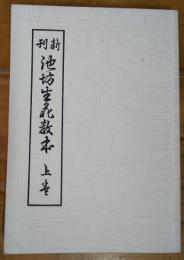 新刊
池坊生花教本 上巻